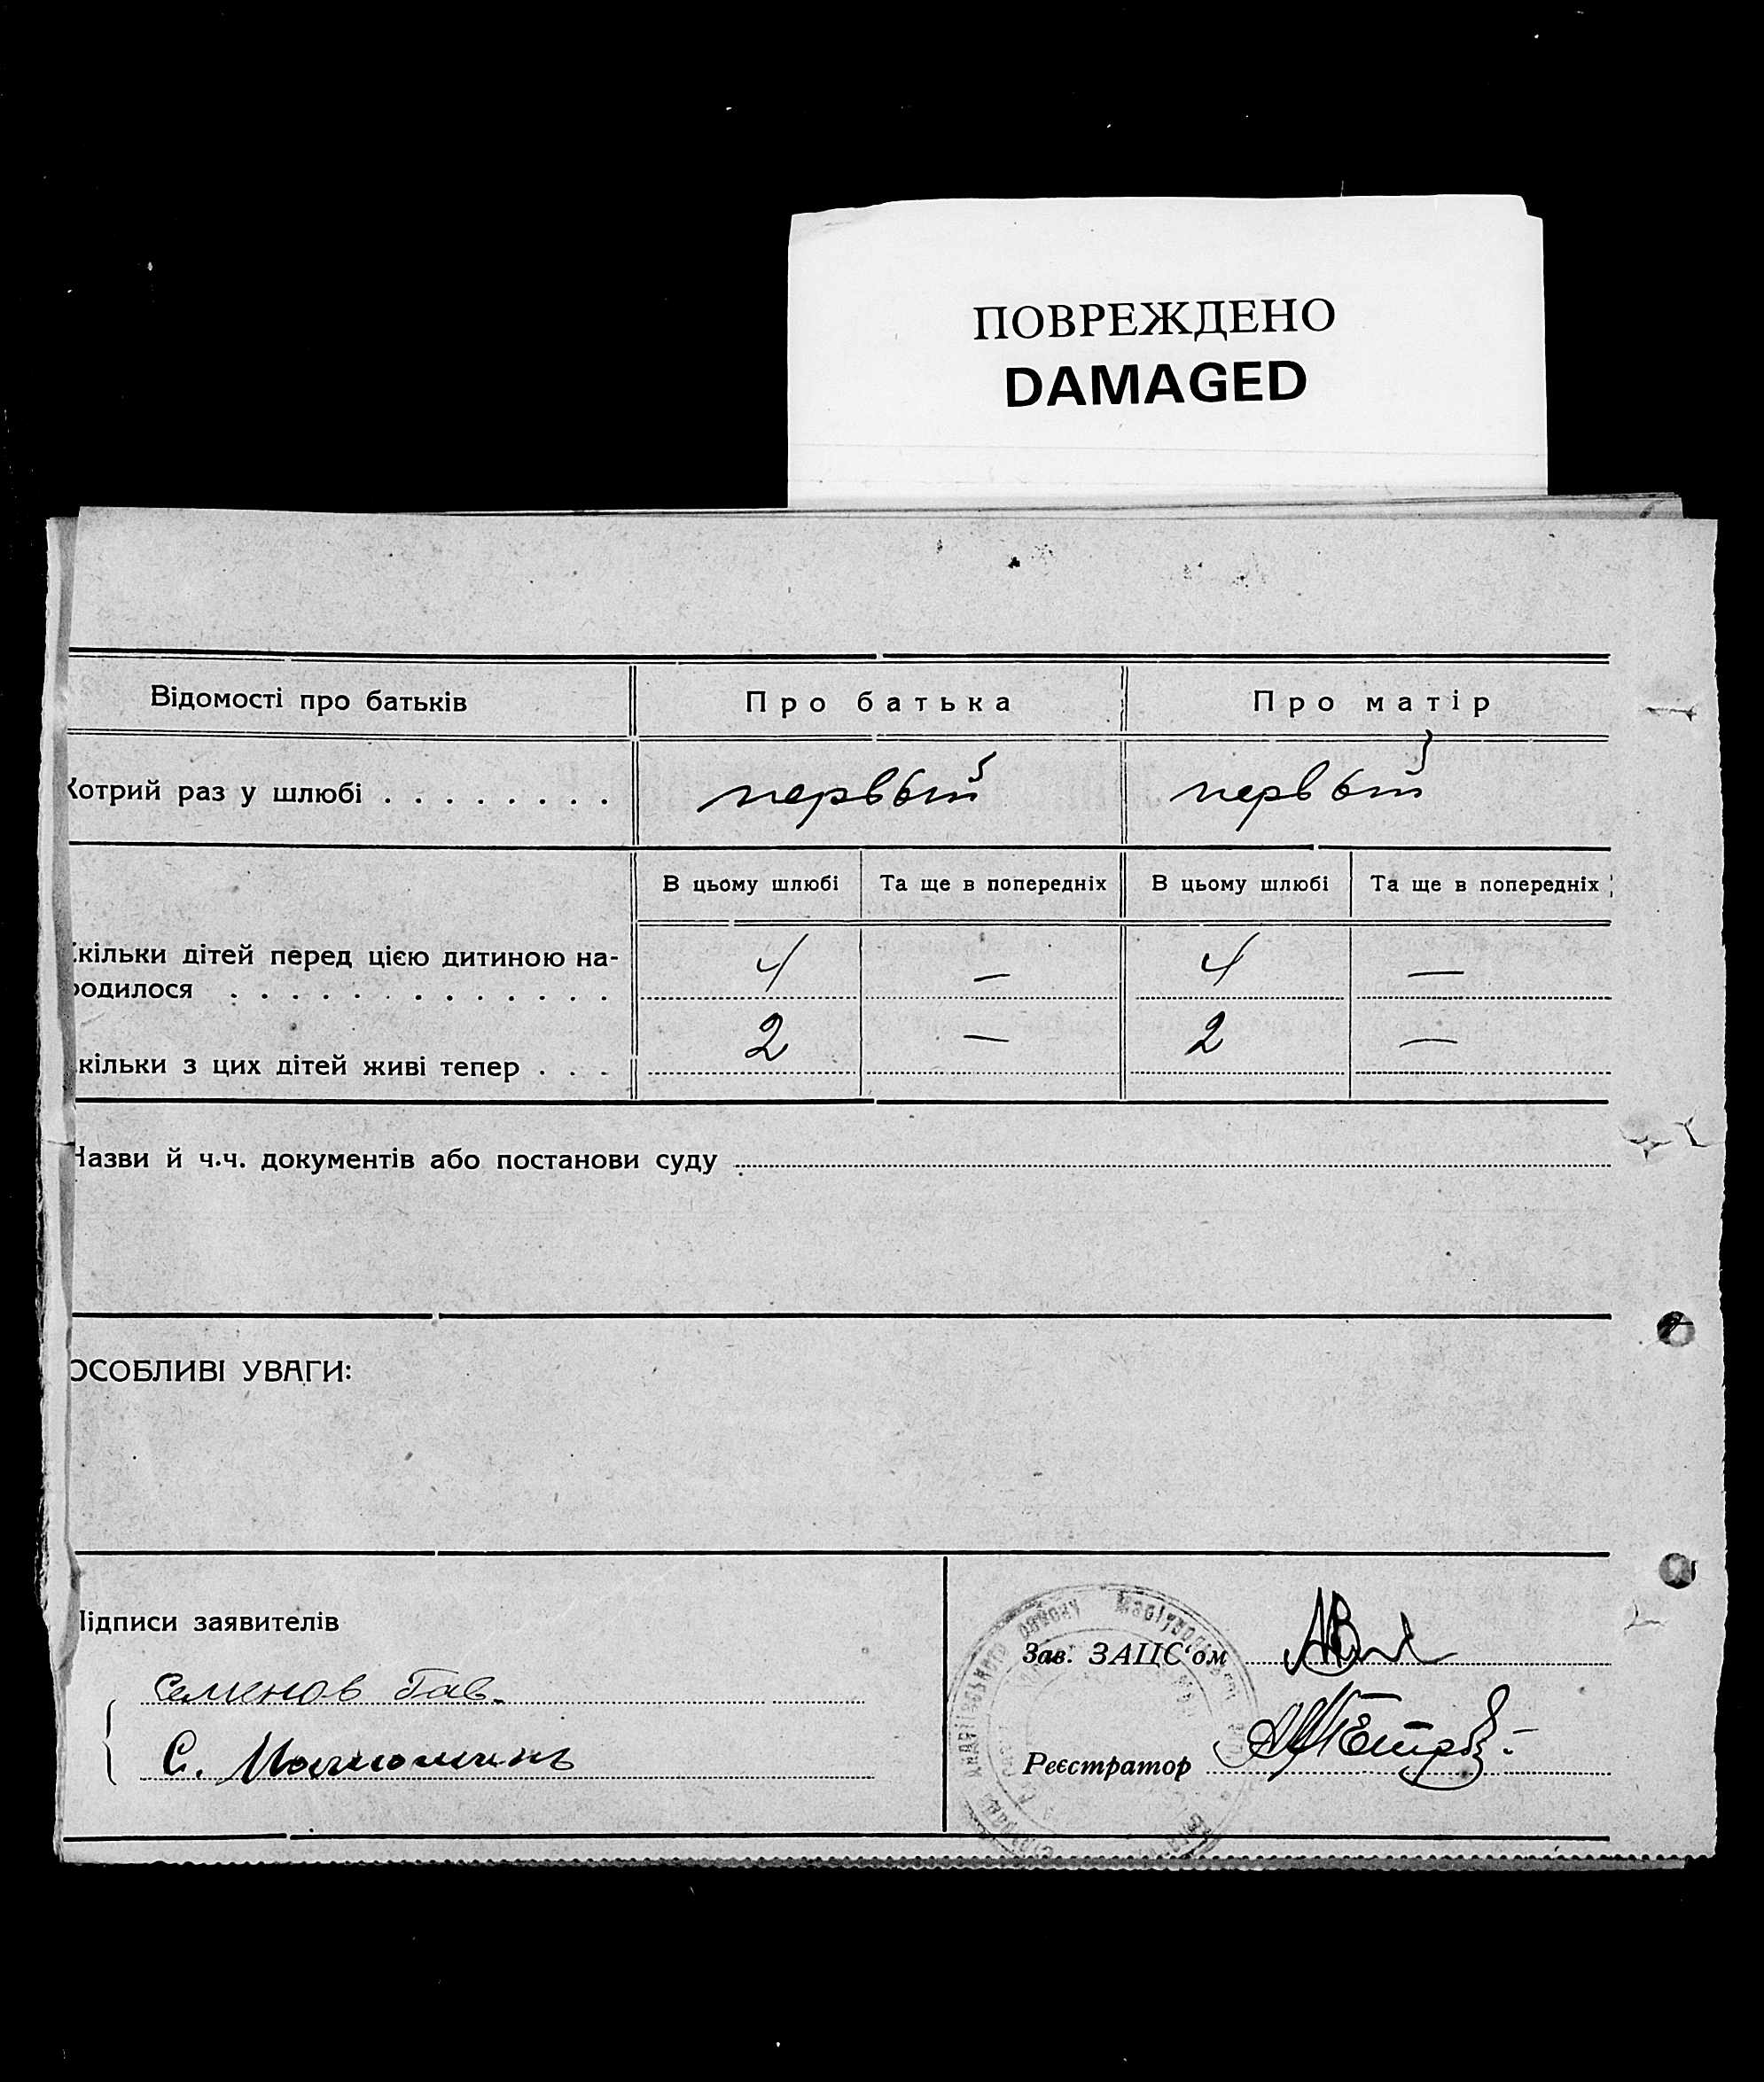 ПОВРЕЖДЕНО
DAMAGED
Відомості про батьків Про батька Про матір
Котрий раз у шлюбі первый первый
В цьому шлюбі Та ще в попередніх В цьому шлюбі Та ще в попередніх
кільки дітей перед цією дитиною на-
родилося 4 — 4 —
кільки з цих дітей живі тепер 2 — 2 —
Назви й ч.ч. документів або постанови суду
ОСОБЛИВІ УВАГИ:
Підписи заявителів
Зав. ЗАЦС'ом
Семенов Гав.
Реєстратор
С.